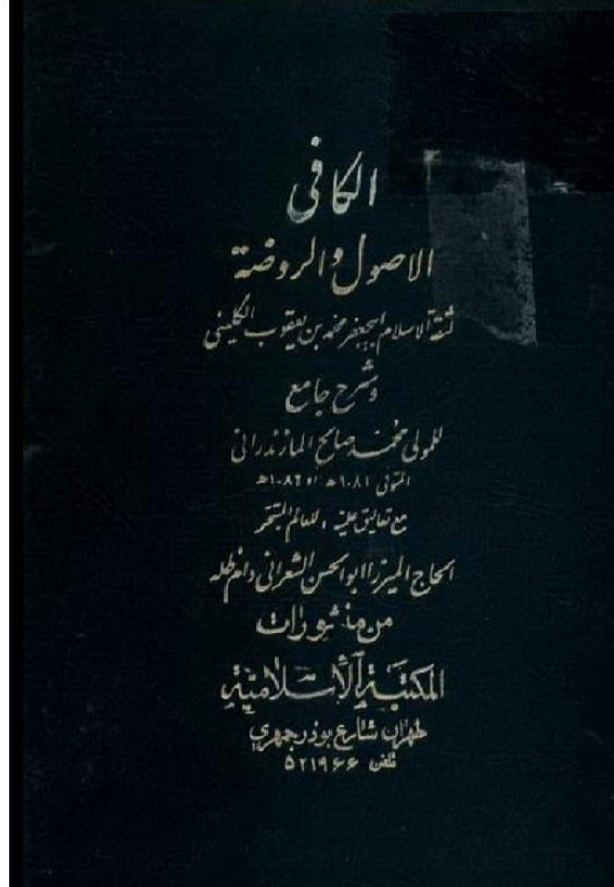 الكافي
الاصول والروضة
لثقة الاسلام ابيجعفر محمد بن يعقوب الكليني
وشرح جامع
للمولى محمد صالح المازندراني
المتوفى ١٠٨١ ه او ١٠٨٦ ه
مع تعاليق علمية للعالم المتبحر
الحاج الميرزا ابوالحسن الشعراني دام ظله
من منشورات
المكتبة الاسلامية
طهران شارع بوذرجمهري
تلفن ٥٢١٩ٶٶ